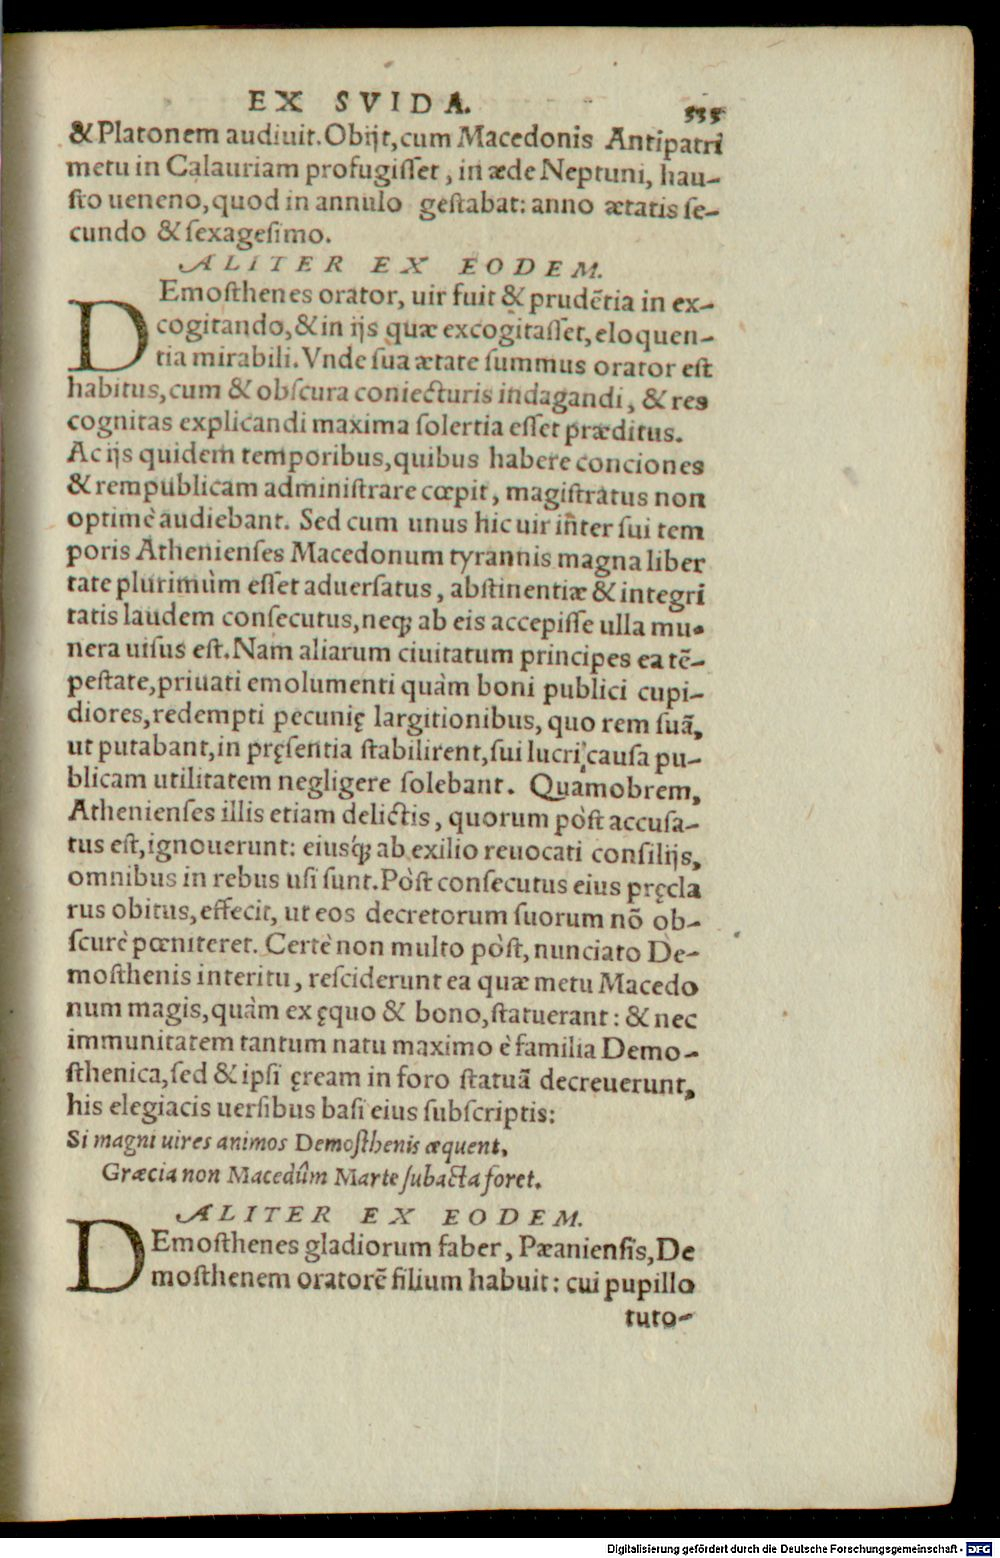 EX SVIDA. 535
& Platonem audiuit. Obijt, cum Macedonis Antipatri
metu in Calauriam profugisset, in æde Neptuni, hau-
sto ueneno, quod in annulo gestabat: anno ætatis se-
cundo & sexagesimo.
ALITER EX EODEM.
DEmosthenes orator, uir fuit & prudẽtia in ex-
cogitando, & in ijs quæ excogitasset, eloquen-
tia mirabili. Vnde sua ætate summus orator est
habitus, cum & obscura coniecturis indagandi, & res
cognitas explicandi maxima solertia esset præditus.
Ac ijs quidem temporibus, quibus habere conciones
& rempublicam administrare cœpit, magistratus non
optimè audiebant. Sed cum unus hic uir inter sui tem
poris Athenienses Macedonum tyrannis magna liber
tate plurimùm esset aduersatus, abstinentiæ & integri
tatis laudem consecutus, neq; ab eis accepisse ulla mu-
nera uisus est. Nam aliarum ciuitatum principes ea tẽ-
pestate, priuati emolumenti quàm boni publici cupi-
diores, redempti pecunię largitionibus, quo rem suã,
ut putabant, in pręsentia stabilirent, sui lucri causa pu-
blicam utilitatem negligere solebant. Quamobrem,
Athenienses illis etiam delictis, quorum pòst accusa-
tus est, ignouerunt: eiusq́; ab exilio reuocati consilijs,
omnibus in rebus usi sunt. Pòst consecutus eius pręcla
rus obitus, effecit, ut eos decretorum suorum nõ ob-
scurè pœniteret. Certè non multo pòst, nunciato De-
mosthenis interitu, resciderunt ea quæ metu Macedo
num magis, quàm ex ęquo & bono, statuerant: & nec
immunitatem tantum natu maximo è familia Demo-
sthenica, sed & ipsi ęream in foro statuã decreuerunt,
his elegiacis uersibus basi eius subscriptis:
Si magni uires animos Demosthenis æquent,
Græcia non Macedûm Marte subacta foret.
ALITER EX EODEM.
DEmosthenes gladiorum faber, Pæaniensis, De
mosthenem oratorẽ filium habuit: cui pupillo
tuto-
Digitalisierung gefördert durch die Deutsche Forschungsgemeinschaft - DFG